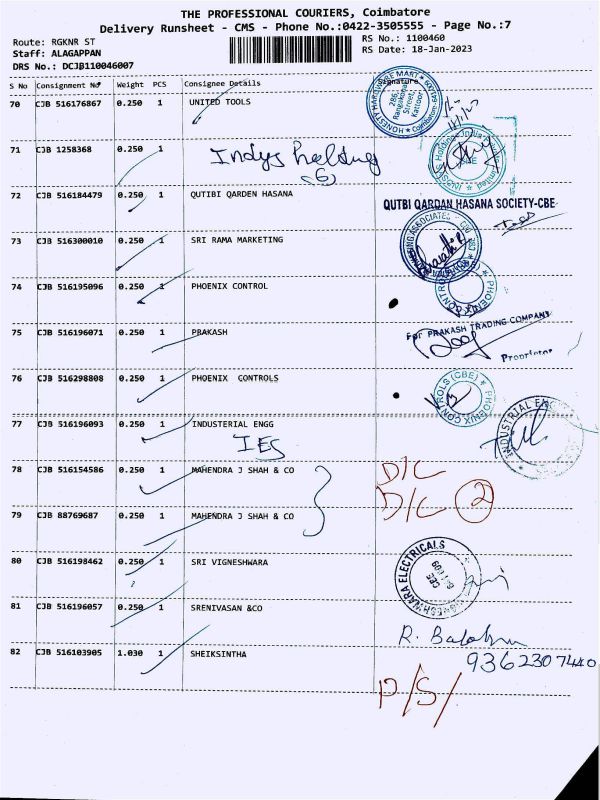 THE PROFESSIONAL COURIERS, Coimbatore
Delivery Runsheet - CMS - Phone No.:0422-3505555 - Page No.:7
Route: RGKNR ST
RS No.: 1100460
Staff: ALAGAPPAN
RS Date: 18-Jan-2023
DRS No.: DCJB110046007
S No Consignment No Weight PCS Consignee Details Signature
70 CJB 516176867 0.250 1 UNITED TOOLS
HONESTY HARDWARE MART
286, Rangakonar Street, Kattoor
71 CJB 1258368 0.250 1 Indys holding
(6)
72 CJB 516184479 0.250 1 QUTIBI QARDEN HASANA
QUTBI QARDAN HASANA SOCIETY-CBE
73 CJB 516300010 0.250 1 SRI RAMA MARKETING
74 CJB 516195096 0.250 1 PHOENIX CONTROL
75 CJB 516196071 0.250 1 PRAKASH
For PRAKASH TRADING COMPANY
Proprietor
76 CJB 516298808 0.250 1 PHOENIX CONTROLS
PHOENIX CONTROLS (CBE)
77 CJB 516196093 0.250 1 INDUSTERIAL ENGG
INDUSTRIAL ENG
IES
78 CJB 516154586 0.250 1 MAHENDRA J SHAH & CO
D/C
79 CJB 88769687 0.250 1 MAHENDRA J SHAH & CO
D/C 2
80 CJB 516198462 0.250 1 SRI VIGNESHWARA
VIGNESHWARA ELECTRICALS
81 CJB 516196057 0.250 1 SRENIVASAN &CO
82 CJB 516103905 1.030 1 SHEIKSINTHA
9362307440
P/S/